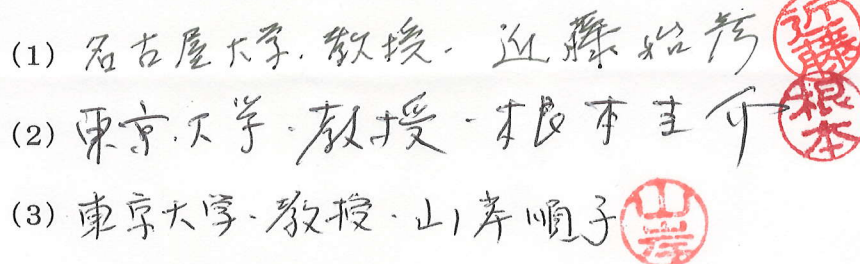 (1) 名古屋大学・教授・近藤始彦 近藤
(2) 東京大学・教授・根本圭介 根本
(3) 東京大学・教授・山岸順子 山岸